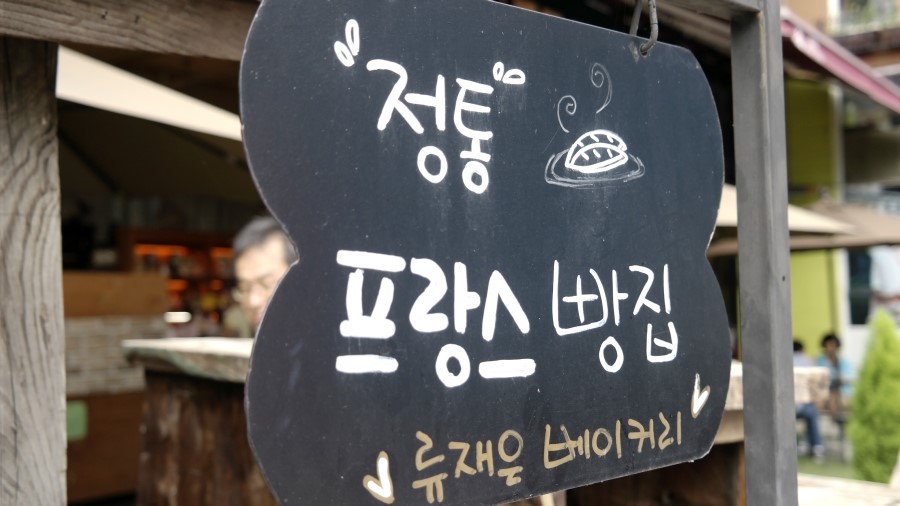 정통
프랑스 빵집
류재은 베이커리